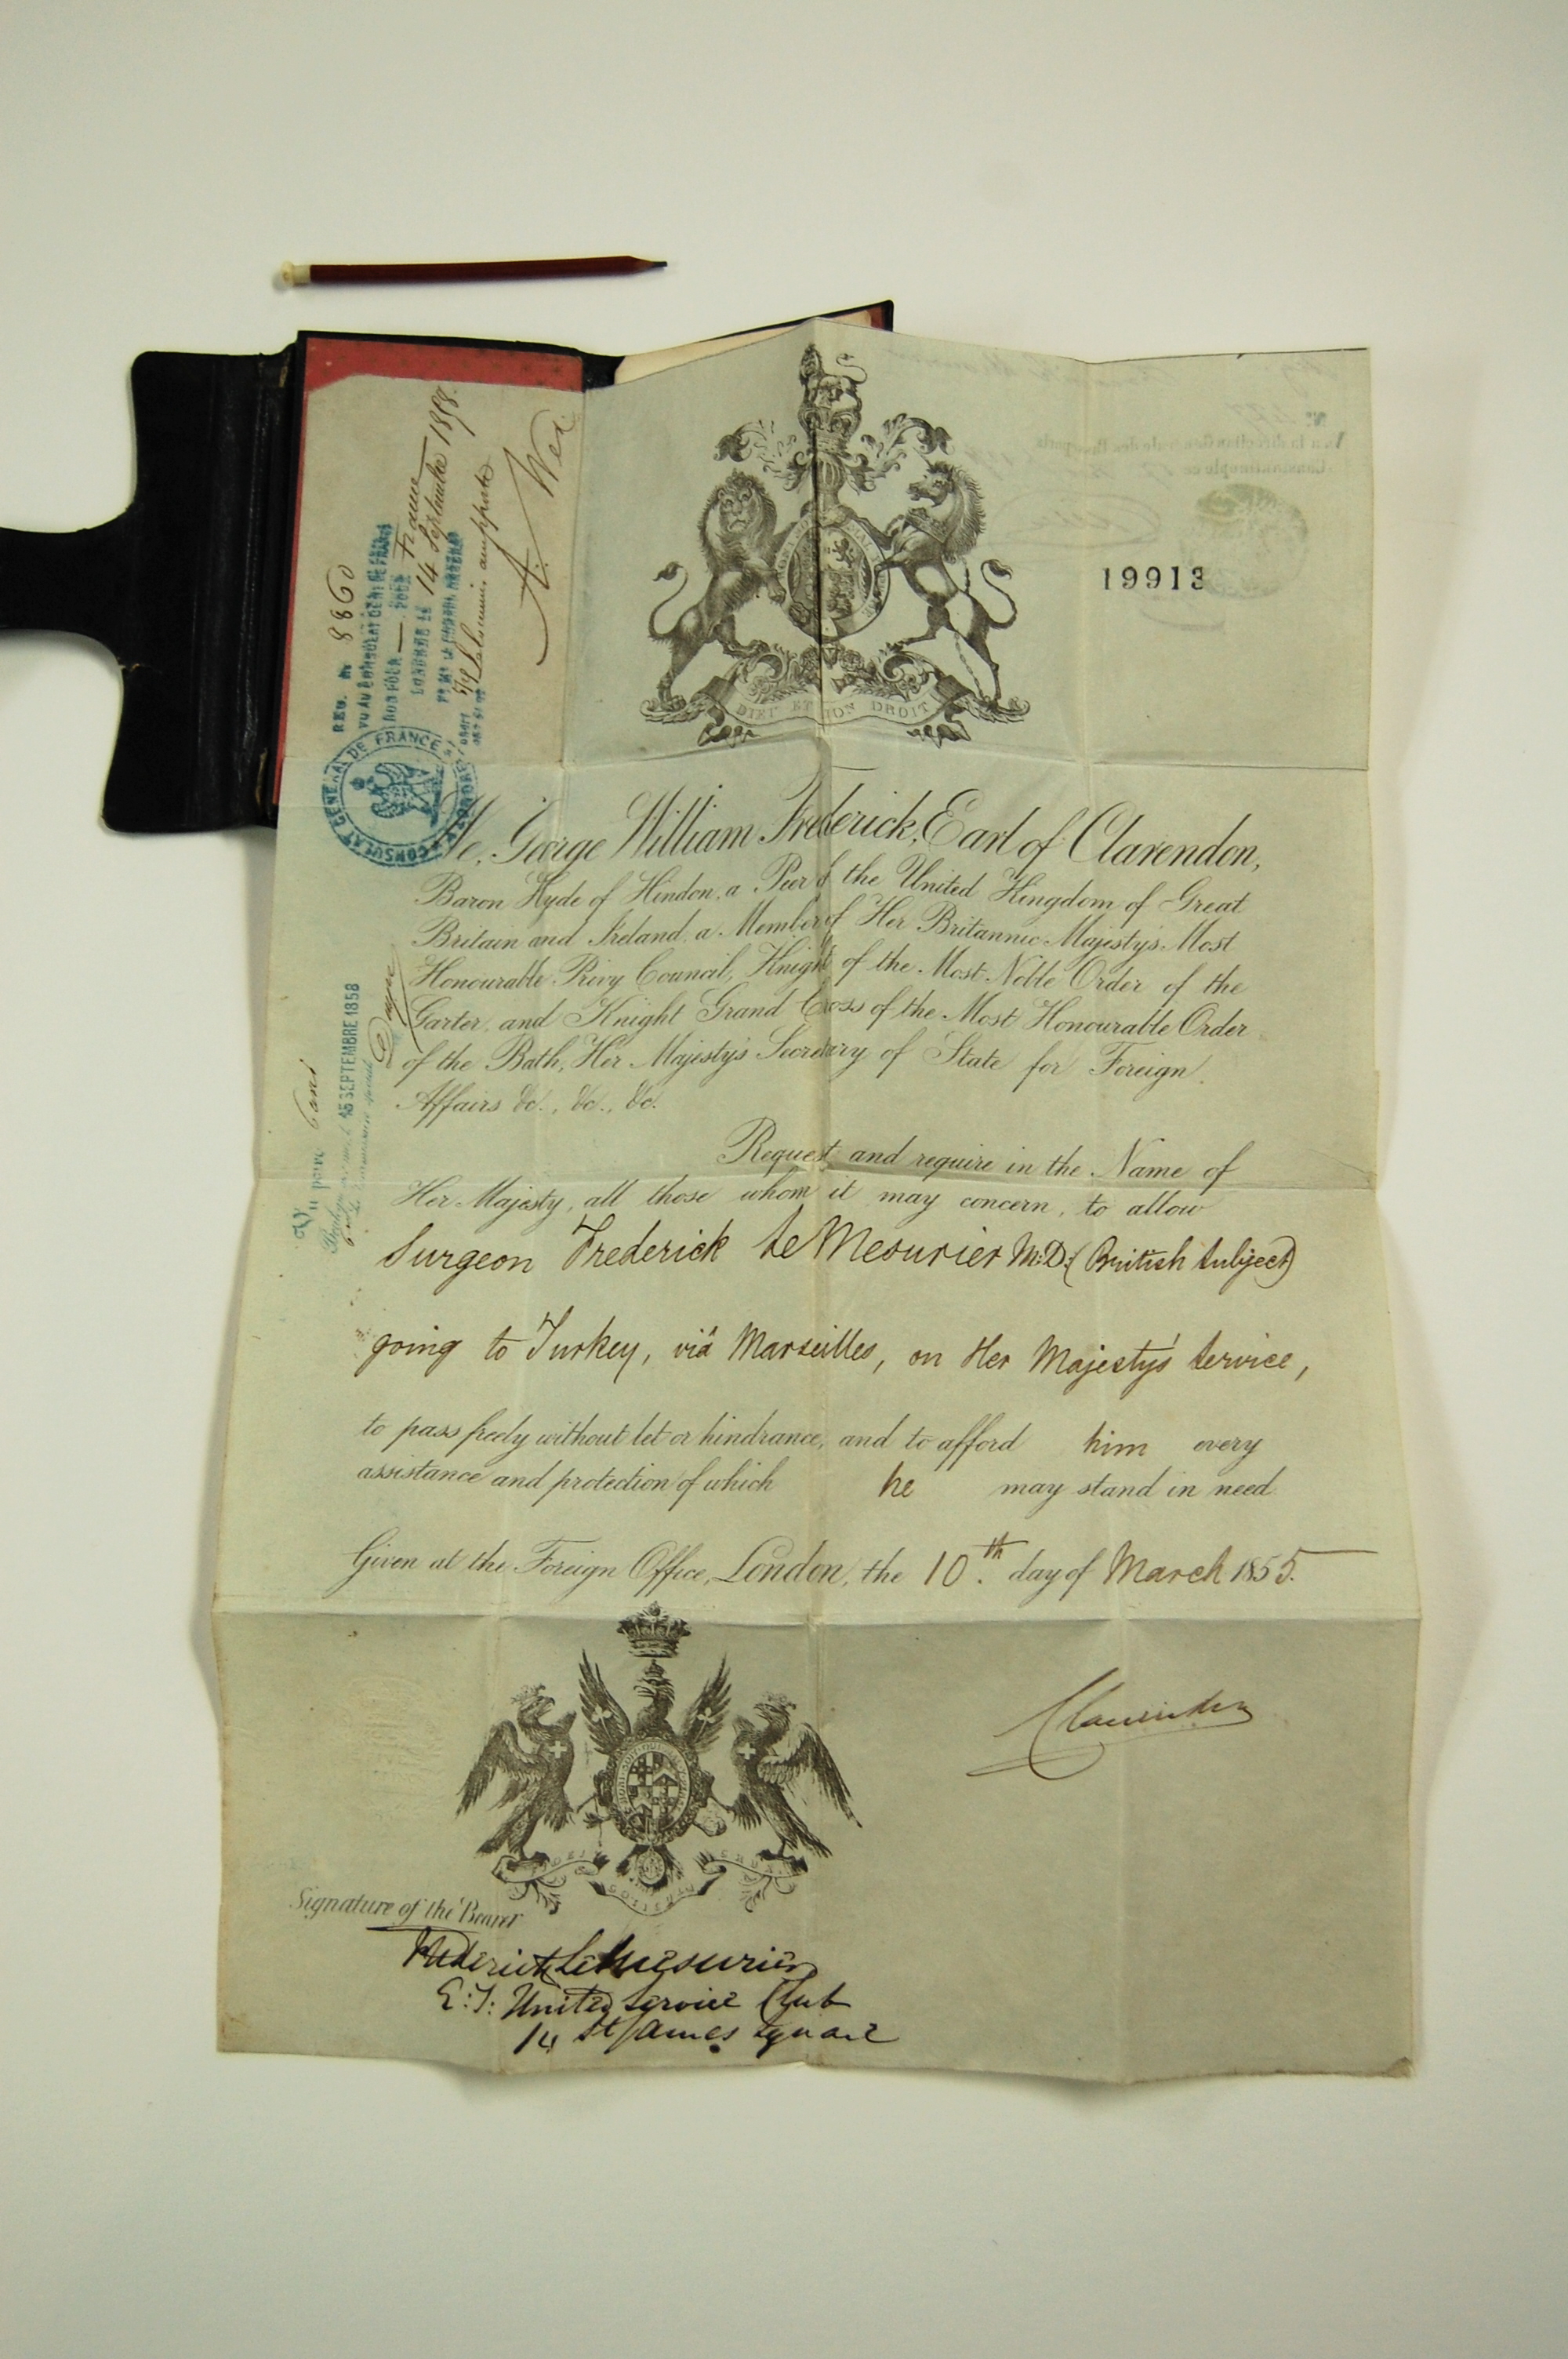 DIEU ET MON DROIT
19913
We, George William Frederick, Earl of Clarendon,
Baron Hyde of Hindon, a Peer of the United Kingdom of Great
Britain and Ireland, a Member of Her Britannic Majesty's Most
Honourable Privy Council, Knight of the Most Noble Order of the
Garter, and Knight Grand Cross of the Most Honourable Order
of the Bath, Her Majesty's Secretary of State for Foreign
Affairs &c., &c., &c.
Request and require in the Name of
Her Majesty, all those whom it may concern, to allow
Surgeon Frederick Le Mesurier M:D: (British Subject)
going to Turkey, viâ Marseilles, on Her Majesty's Service,
to pass freely without let or hindrance, and to afford him every
assistance and protection of which he may stand in need
Given at the Foreign Office, London, the 10th. day of March 1855.
Clarendon
Signature of the Bearer
Frederick LeMesurier
E:I: United Service Club
14 St James Square
REG. No 8860
VU AU CONSULAT GENERAL DE FRANCE
BON POUR — POUR France
LONDRES LE 14 Septembre 1858.
CONSULAT GENERAL DE FRANCE A LONDRES
Vu pour
15 SEPTEMBRE 1858